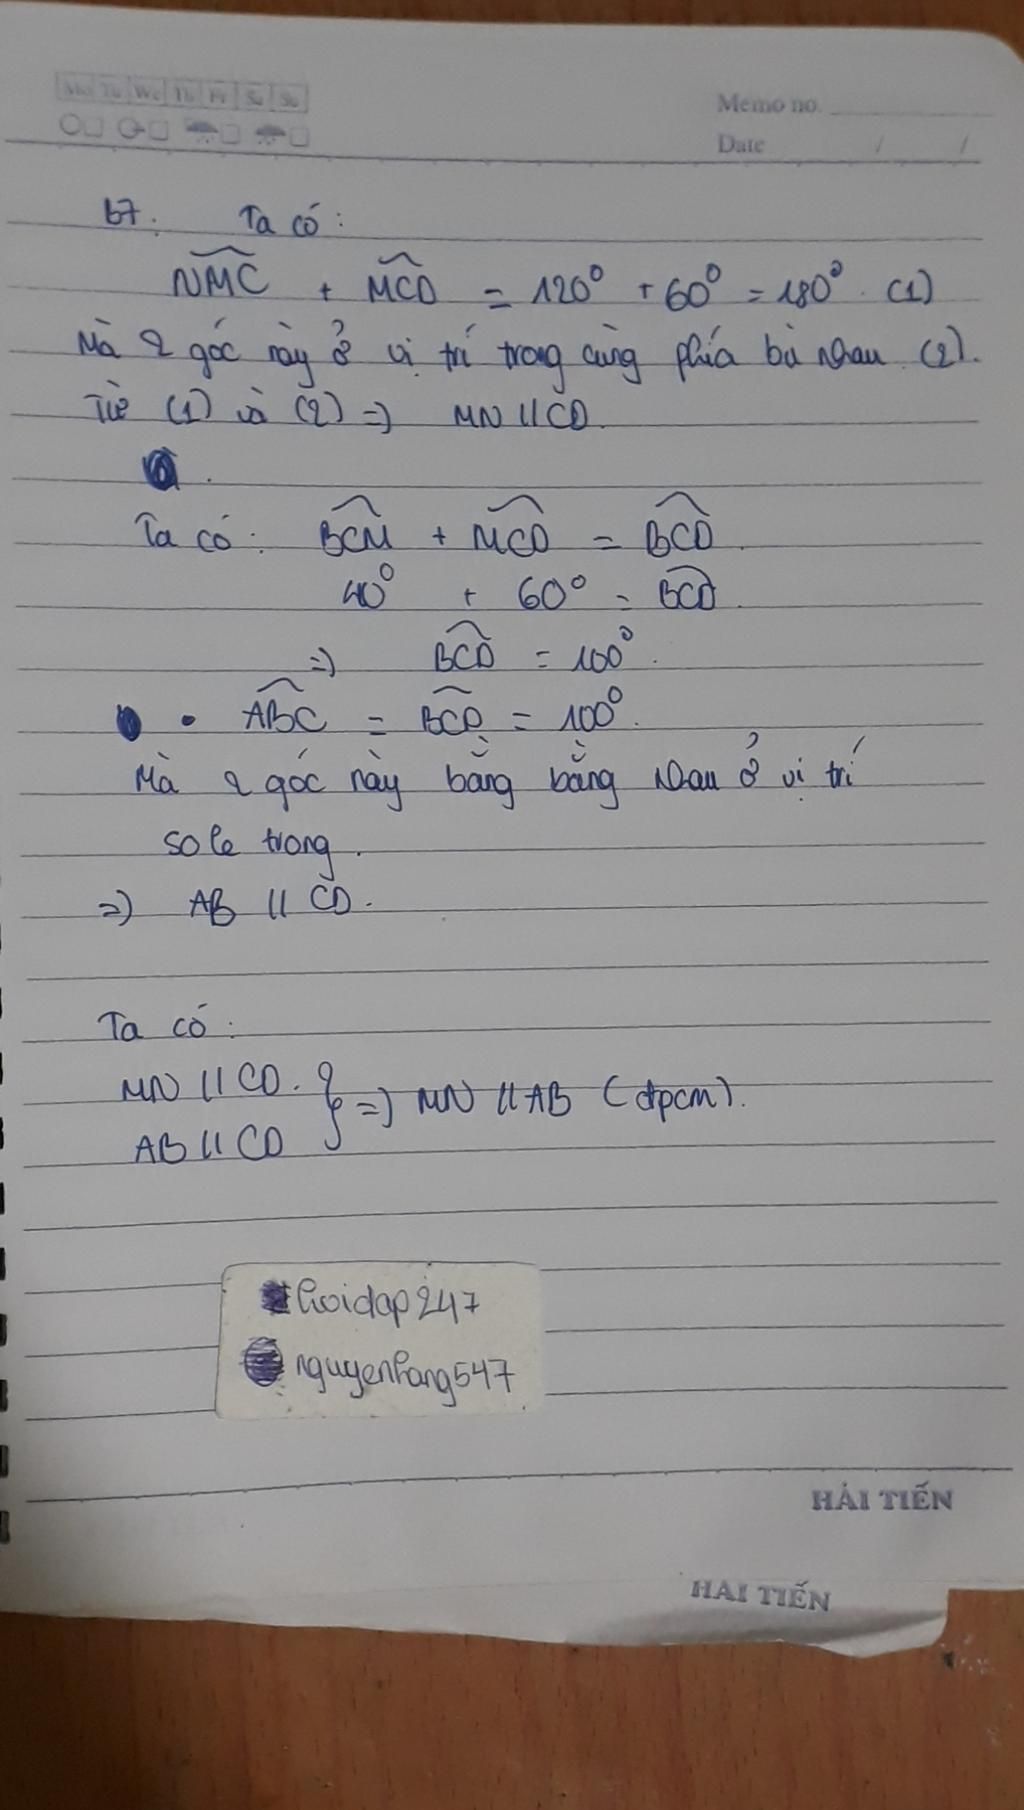 Mo Tu We Th Fr Sa Su
Memo no.
Date / /
b7. Ta có:
NMC + MCD = 120° + 60° = 180°. (1)
Mà 2 góc này ở vị trí trong cùng phía bù nhau (2).
Từ (1) và (2) => MN // CD.
Ta có: BCM + MCD = BCD.
40° + 60° = BCD.
=> BCD = 100°.
• ABC = BCD = 100°.
Mà 2 góc này bằng bằng nhau ở vị trí
sole trong.
=> AB // CD.
Ta có:
MN // CD. } => MN // AB (đpcm).
AB // CD
hoidap247
nguyenhang547
HẢI TIẾN
HẢI TIẾN